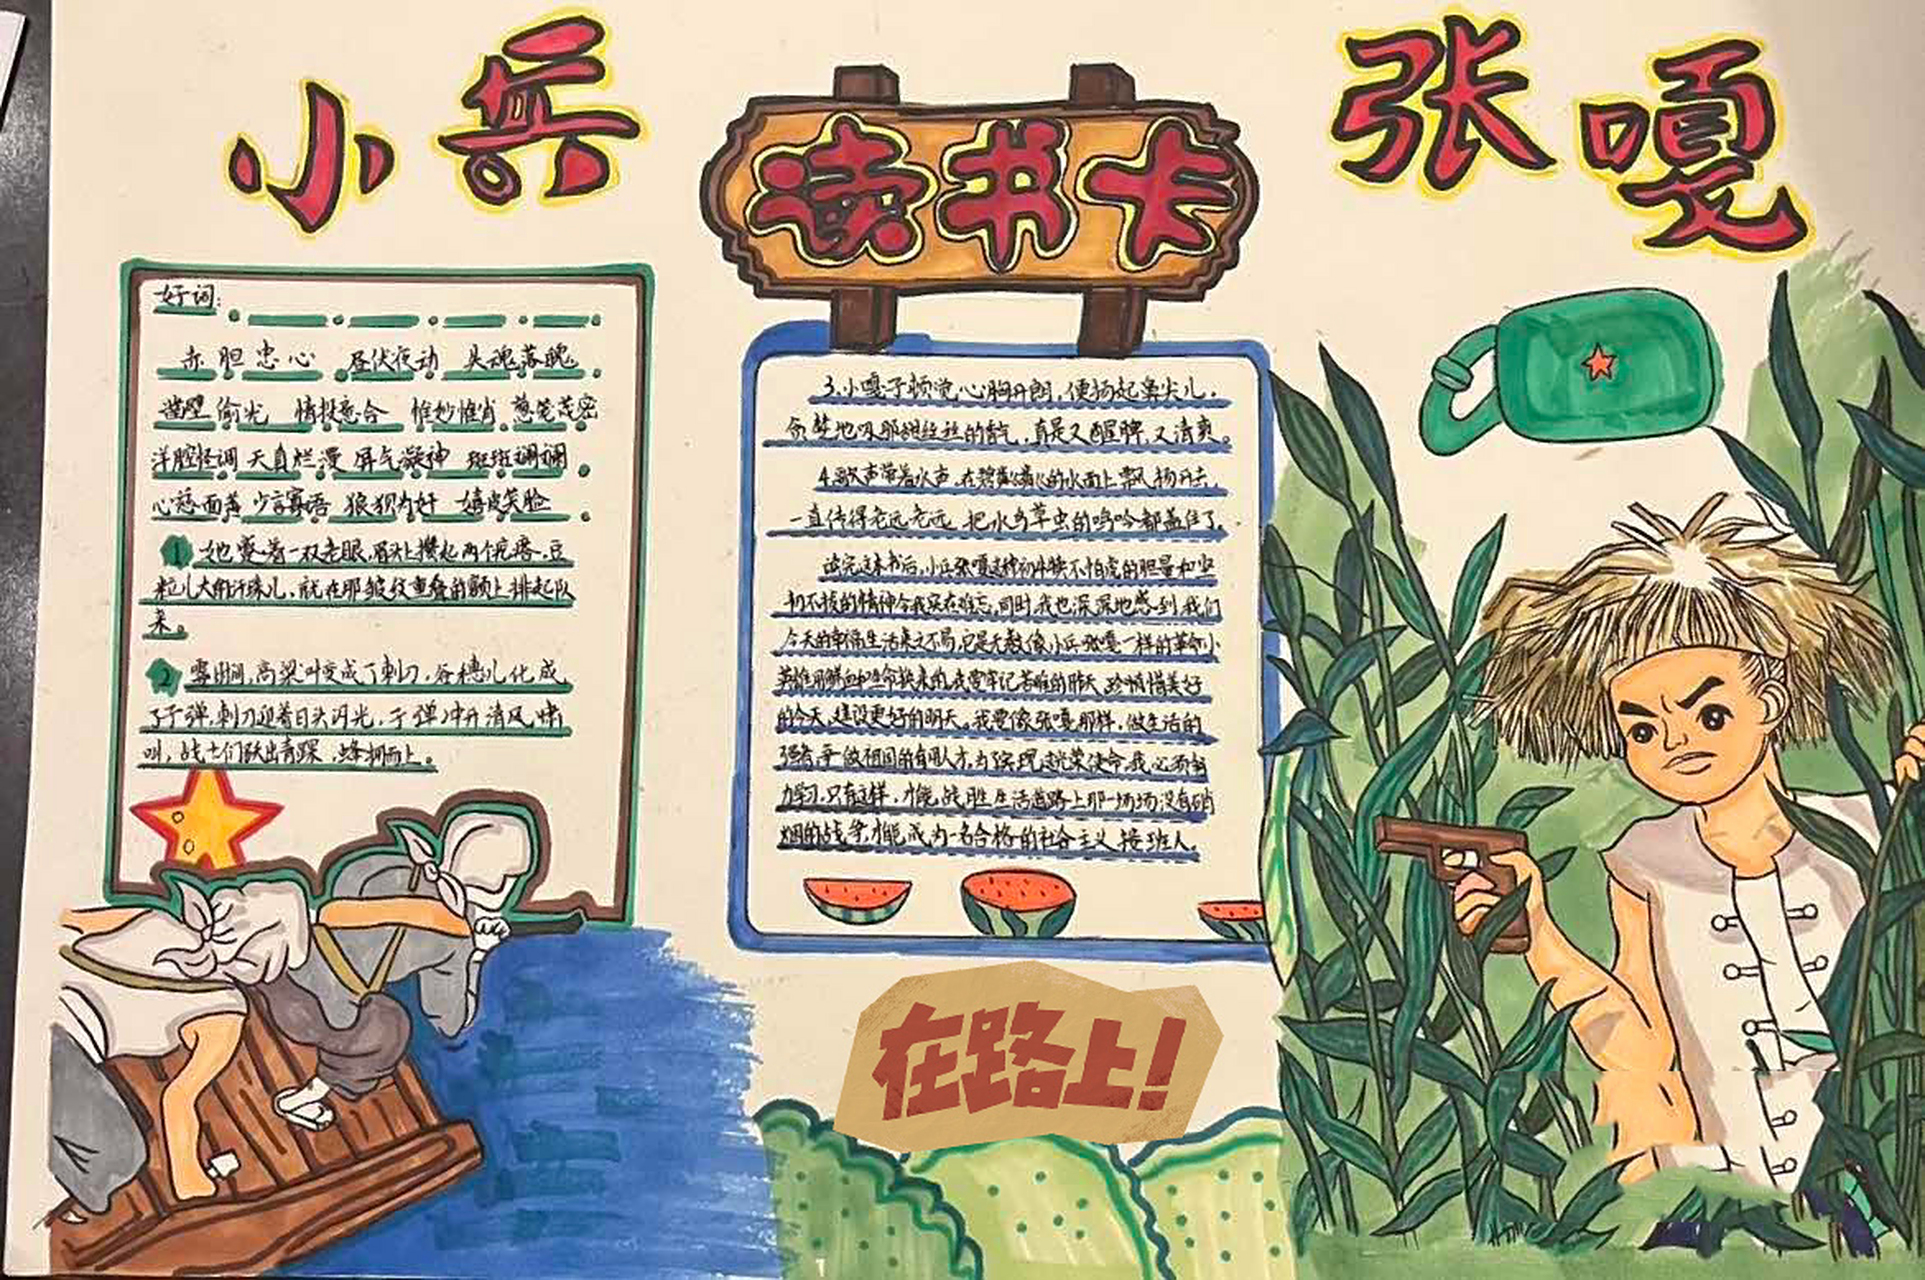 小兵
读书卡
张嘎
好词:
赤胆忠心 昼伏夜动 失魂落魄
凿壁偷光 情投意合 惟妙惟肖 葱茏茂密
洋腔怪调 天真烂漫 屏气凝神 斑斑斓斓
心慈面善 少言寡语 狼狈为奸 嬉皮笑脸
1 她塞着一双老眼,眉头上攒起两个疙瘩,豆
粒儿大的汗珠儿,就在那皱纹重叠的额上排起队
来。
2 霎时间,高梁叶变成了刺刀,谷穗儿化成
了子弹,刺刀迎着日头闪光,子弹冲开清风啸
叫,战士们跃出青
3.小嘎子顿觉心胸开朗,便扬起鼻尖儿,
贪婪地吸那甜丝丝的香气,真是又醒脾,又清爽。
4.歌声带着水声,在碧的水面上飘扬开去,
一直传得老远老远,把水鸟草虫的鸣吟都盖住了。
读完这本书后,小兵张嘎这种初生牛犊不怕虎的胆量和坚
韧不拔的精神令我实在难忘,同时,我也深深地感到我们
今天的幸福生活来之不易,它是无数像小兵张嘎一样的革命小
英雄用鲜血和生命换来的,我要牢记苦难的昨天,珍惜美好
的今天,建设更好的明天。我要像张嘎那样,做生活的
强者,争做祖国的有用人才,为实现这光荣使命,我必须努
力学习,只有这样,才能战胜生活道路上那一场场没有硝
烟的战争,才能成为一名合格的社会主义接班人。
在路上!